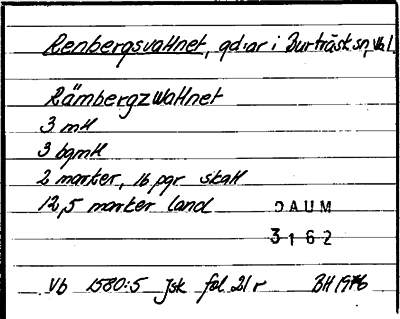 Renbergsvattnet, gd:ar i Burträsk sn, Vb l.
Rämbergzwattnet
3 mtt
3 bgmtt
2 marker, 16 pgr skatt
12,5 marker land
DAUM
3162
Vb 1580:5 Jsk fol 21 r BH 1976